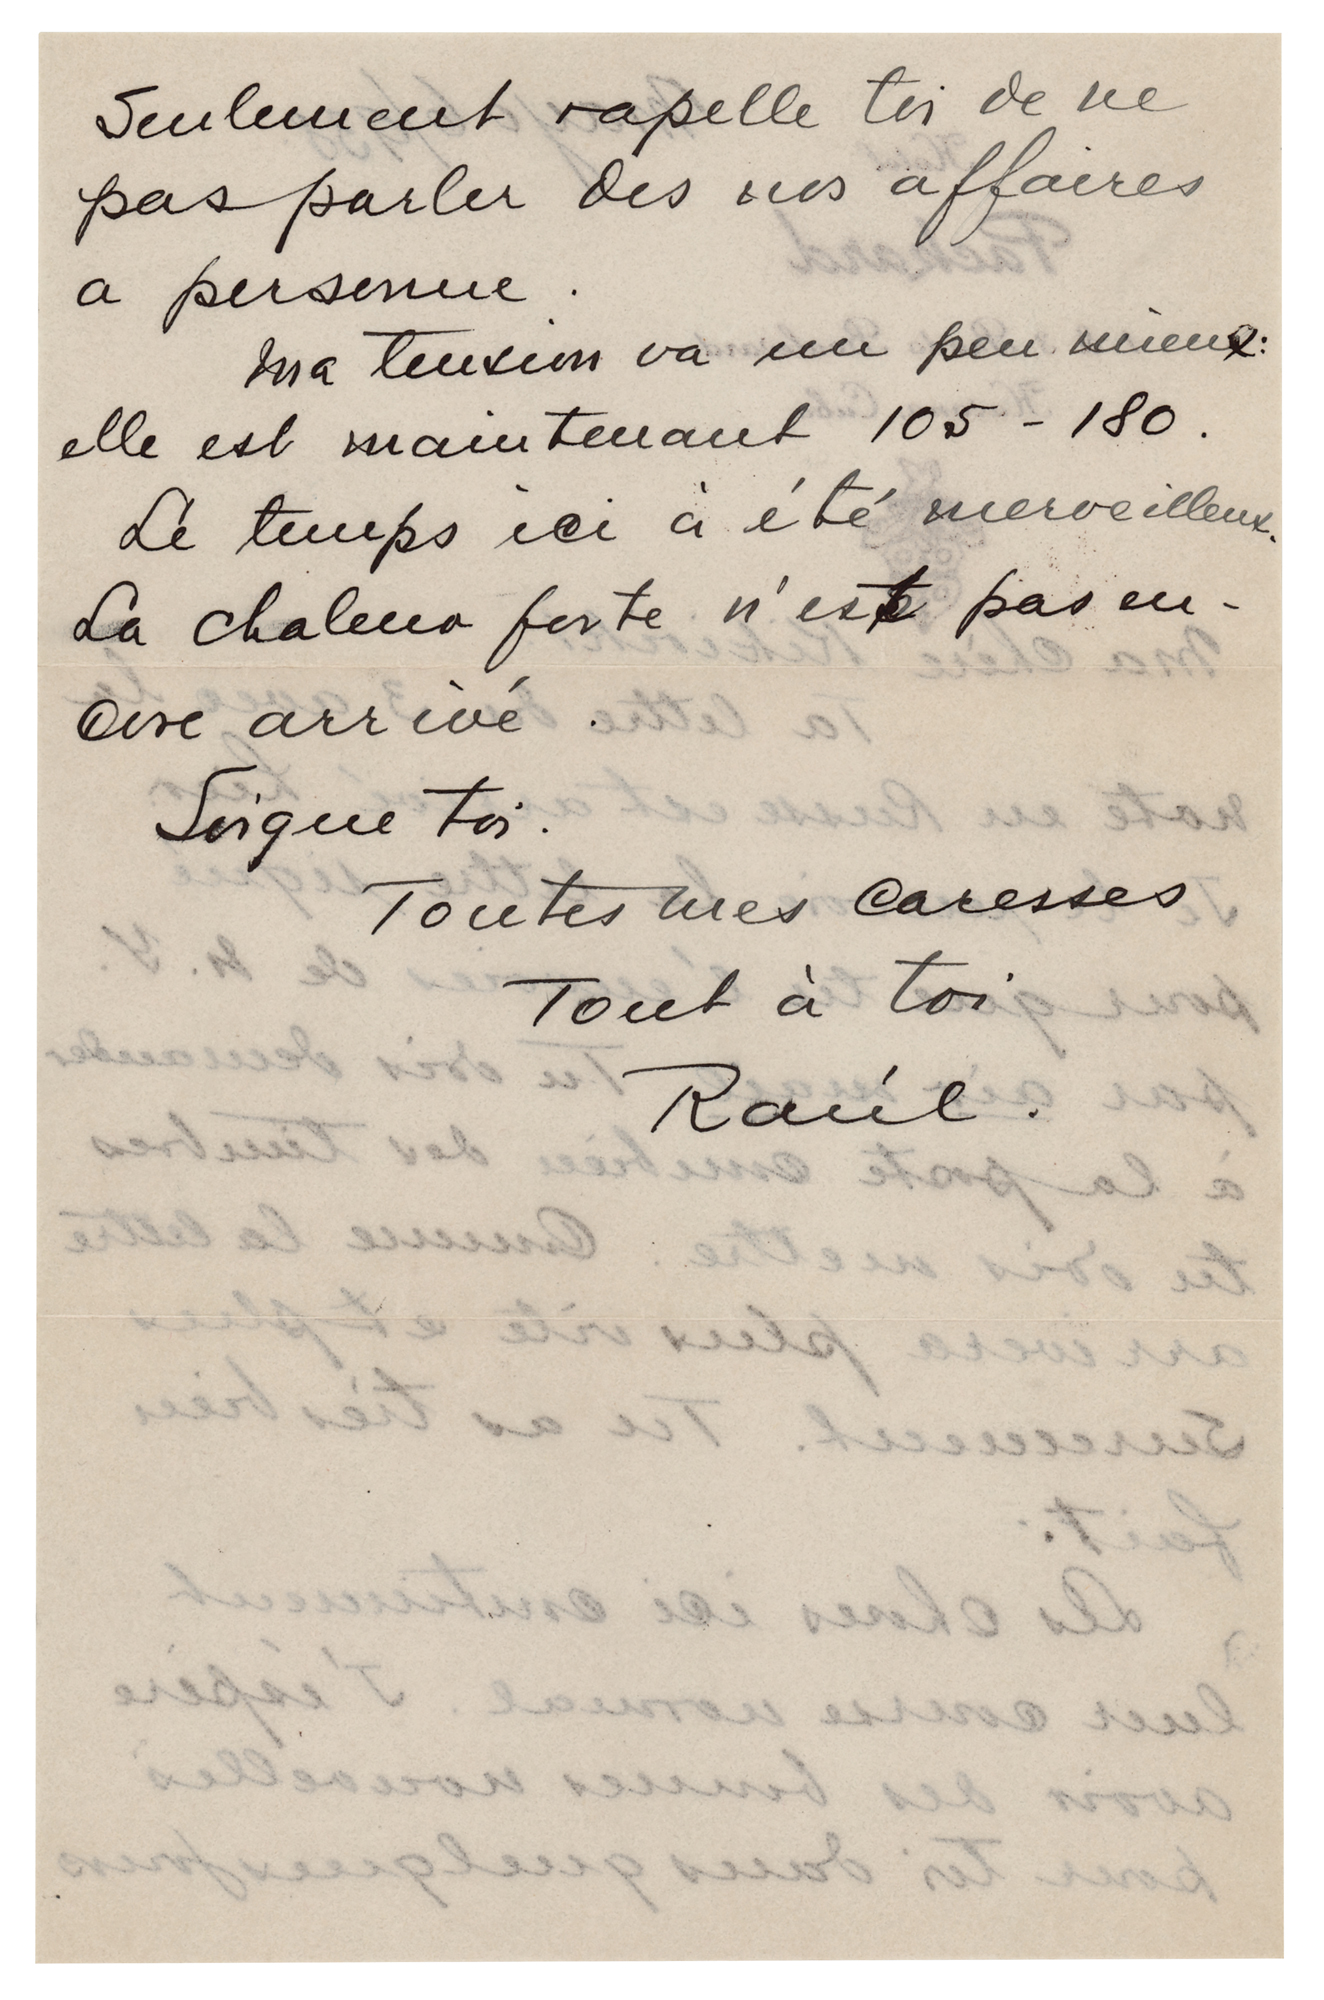 Seulement rapelle toi de ne
pas parler des nos affaires
a personne.
Ma tension va un peu mieux:
elle est maintenant 105 - 180.
Le temps ici à été merveilleux.
La chaleur forte n'est pas en-
core arrivé.
Soigne toi.
Toutes mes caresses
Tout à toi
Raúl.